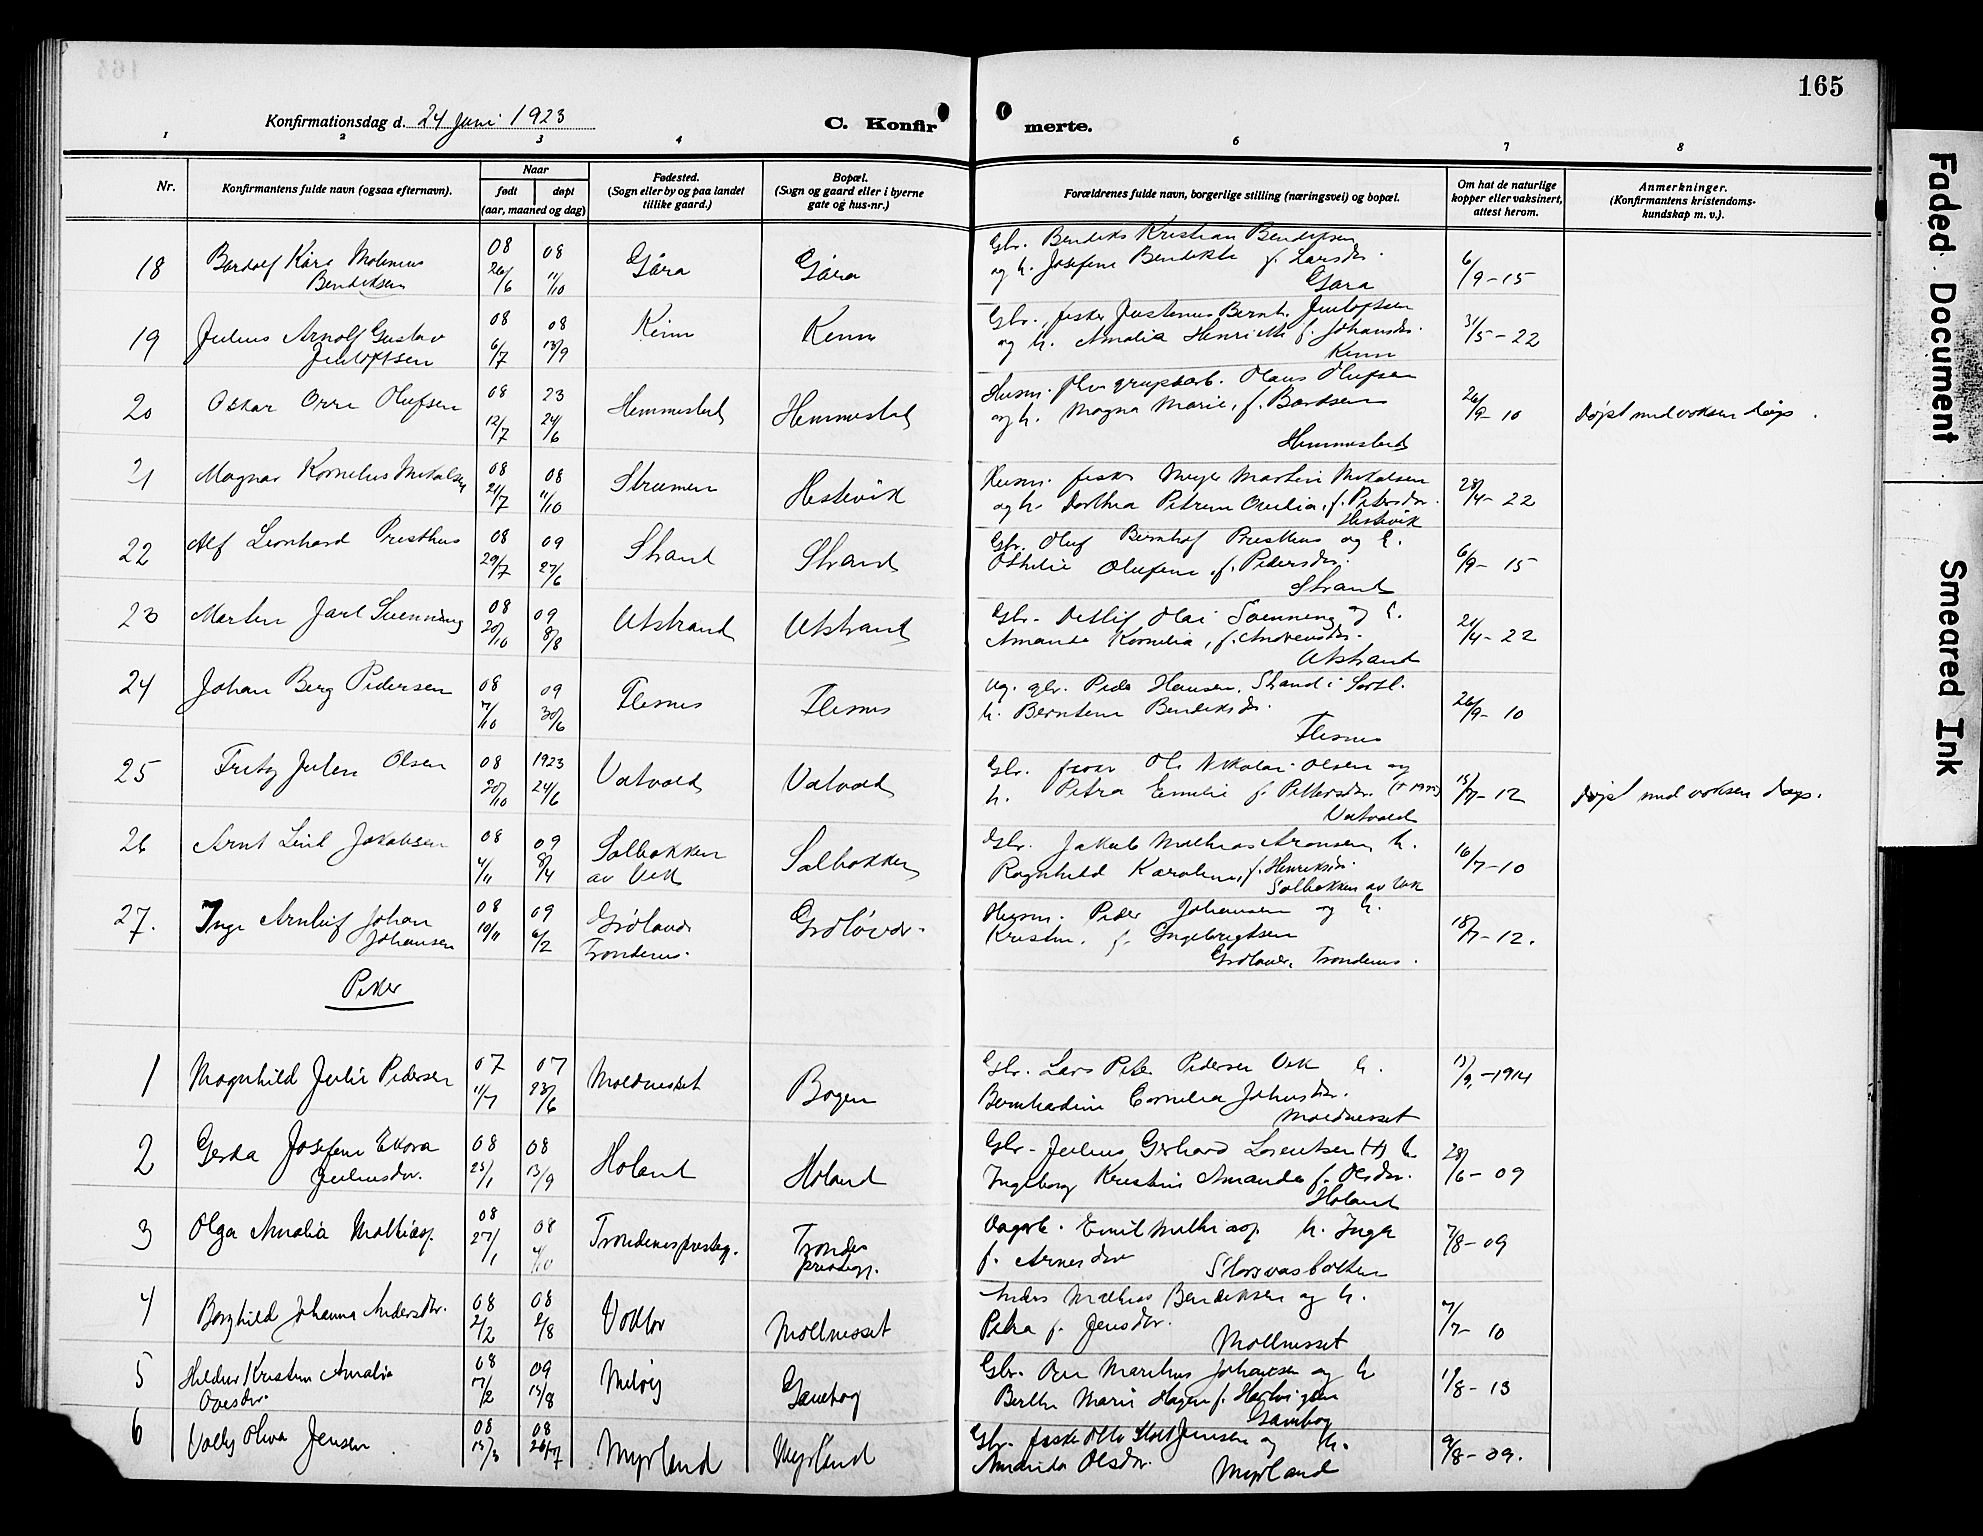 165
Konfirmationsdag d. 24 Juni 1923
C. Konfirmerte.
1 2 3 4 5 6 7 8
Nr.
Konfirmantens fulde navn (ogsaa efternavn).
Naar
født
døpt
(aar, maaned og dag)
Fødested.
(Sogn eller by og paa landet
tillike gaard.)
Bopæl.
(Sogn og gaard eller i byerne
gate og hus-nr.)
Forældrenes fulde navn, borgerlige stilling (næringsvei) og bopæl.
Om hat de naturlige
kopper eller vaksinert,
attest herom.
Anmerkninger.
(Konfirmantens kristendoms-
kundskap m. v.).
18 Bardolf Kåre Molenius 08 08 Gåra Gåra Gbr. Bendiks Kristian Bendiksen 6/9-15
Bendiksen 26/6 11/10 og h. Josefine Bendikte f. Larsdtr.
Gåra
19 Julius Arnolf Gustav 08 08 Keiin Keiin Gbr. fisker Justenius Bernh. Jenloftsen 31/5-22
Jenloftsen 6/7 13/9 og h. Amalia Henriette f. Johansdtr.
20 Oskar Orre Olufsen 08 23 Hemmestad Hemmestad Husm. Olaus Olufsen 26/9-10 døpt med voksen daap.
12/7 24/6 og h. Magna Marie, f. Bardsen
Hemmestad
21 Magnar Kornelius Mikalsen 08 08 Straumen Hestevik Husm. fisker Meyer Martin Mikalsen 28/4-22
21/7 11/10 og h. Dorthea Petrine f. Petersdtr.
Hestevik
22 Alf Leonhard Presthus 08 09 Strand Strand Gbr. Oluf Bernhof Presthus og h. 6/9-15
29/7 27/6 Othelie Olufine, f. Pedersdtr.
Strand
23 Martin Jarl Svenning 08 09 Utstrand Utstrand Gbr. Detlif Olai Svenning og h. 21/4-22
20/10 8/8 Amanda Kornelia, f. Andreasdtr.
Utstrand
24 Johan Berg Pedersen 08 09 Flesnes Flesnes Ug. gbr. Peder Hansen, Strand i Sortl. 26/9-10
7/10 30/6 h. Berntine Bendiksdtr.
Flesnes
25 Fritz Julen Olsen 08 1923 Vatvold Vatvold Gbr. Ole Nikolai Olsen og 15/7-12 døpt med voksen daap.
20/10 24/6 h. Petra Emilie f. Pettersdtr.
Vatvold
26 Arnt Jakobsen 08 09 Solbakken Solbakken Gbr. Jakob Mathias Aronsen h. 16/7-10
4/11 8/4 av Vik Ragnhild Karoline, f. Henriksdtr.
Solbakken av Vik
27. Inge Arnleif Johan 08 09 Grøtavær Grøtavær Husm. Peder Johansen og h. 18/7-12.
Johansen 10/11 6/2 Trondenes. Kristine, f. Ingebrigtsen
Grøtavær, Trondenes.
Piker
1 Magnhild Julie Pedersen 07 07 Moldnesset Bogen Gbr. Lars Peter Pedersen Vik h. 13/9-1914
11/7 23/6 Bernhardine Cornelia Johnsdtr.
Moldnesset
2 Gerda Josefine Ekora 08 08 Holand Holand Gbr. Julius Gerhard Lorentsen h 28/6-09
Juliusdtr. 25/1 13/9 Ingeborg Kristine Amanda f. Olsdtr.
Holand
3 Olga Amalia Mathiasp. 08 08 Trondenes prestegj. Trondes Emil Mathiasp. h. Inga 7/8-09
27/1 4/10 prestegj. f. Arnesdtr
Storvasbotten
4 Borghild Johanna Andersdtr. 08 08 Mollnesset Anders Mathias Bendiksen og h. 7/7-10
2/2 2/8 Petra f. Jensdtr. Mollnesset
5 Hildur Kristine Amalia 08 09 Meløy Gausbog Gbr. Ove Marthus Johansen og h 1/8-13
Ovesdtr. 17/2 15/8 Berthe Marie Hagen f. Hartvigsen
6 Vally Oliva Jensen 08 08 Myrland Myrland Gbr. fisker Otto Jensen og h. 9/8-09.
13/3 26/7 Amanda Olsdtr. Myrland
Faded Document
Smeared Ink